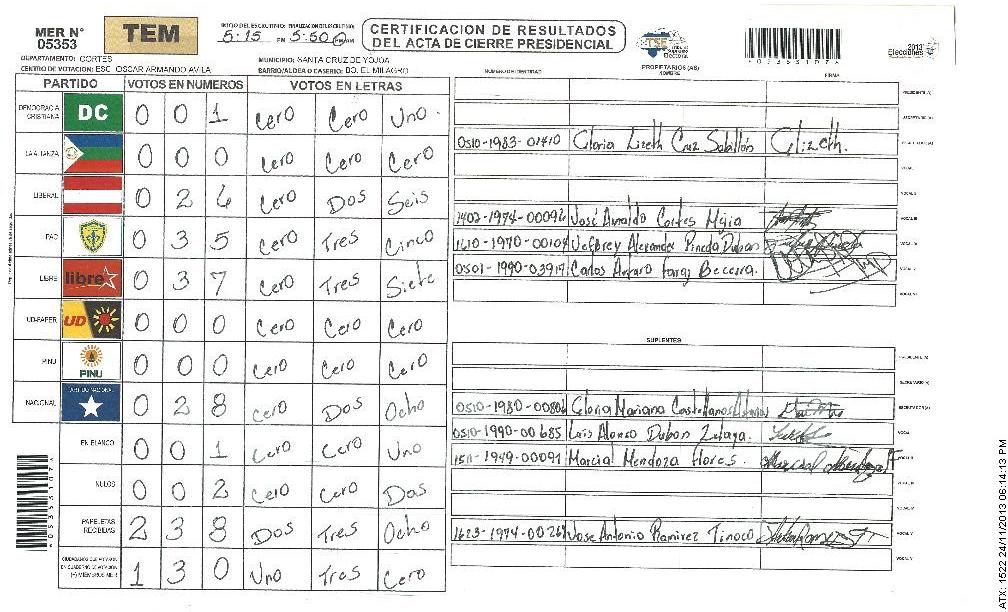 MER N° 05353
TEM
INICIO DEL ESCRUTINIO: 5:15 PM
FINALIZACION DEL ESCRUTINIO: 5:50 PM
CERTIFICACION DE RESULTADOS
DEL ACTA DE CIERRE PRESIDENCIAL
TSE Tribunal Supremo Electoral
Elecciones 2013
DEPARTAMENTO: CORTES
MUNICIPIO: SANTA CRUZ DE YOJOA
CENTRO DE VOTACION: ESC. OSCAR ARMANDO AVILA
BARRIO/ALDEA O CASERIO: BO. EL MILAGRO
PARTIDO VOTOS EN NUMEROS VOTOS EN LETRAS
DEMOCRACIA CRISTIANA DC 0 0 1 Cero Cero Uno.
LA ALIANZA 0 0 0 Cero Cero Cero
LIBERAL 0 2 6 Cero Dos Seis
PAC 0 3 5 Cero Tres Cinco
LIBRE libre 0 3 7 Cero Tres Siete
UD-FAPER UD 0 0 0 Cero Cero Cero
PINU PINU 0 0 0 Cero Cero Cero
NACIONAL PARTIDO NACIONAL 0 2 8 Cero Dos Ocho
EN BLANCO 0 0 1 Cero Cero Uno
NULOS 0 0 2 Cero Cero Dos
PAPELETAS RECIBIDAS 2 3 8 Dos Tres Ocho
CIUDADANOS QUE VOTARON EN CUADERNO DE VOTACION (+) MIEMBROS MER 1 3 0 Uno Tres Cero
NUMERO DE IDENTIDAD PROPIETARIOS (AS) NOMBRE FIRMA
PRESIDENTE (A)
SECRETARIO (A)
0510-1983-01410 Gloria Lizeth Cruz Sabillón Glizeth. ESCRUTADOR (A)
VOCAL I
VOCAL II
1402-1974-00096 José Arnaldo Cortes Mejia VOCAL III
1610-1970-00104 Jeffrey Alexander Pineda Dubon VOCAL IV
0501-1990-03917 Carlos Arturo Faraj Becerra. VOCAL V
VOCAL VI
SUPLENTES
PRESIDENTE (A)
SECRETARIO (A)
0510-1980-00806 Gloria Mariana Castellanos ESCRUTADOR (A)
0510-1990-00685 Luis Alonso Dubon Zelaya. VOCAL I
1511-1949-00091 Marcial Mendoza Flores. VOCAL II
VOCAL III
VOCAL IV
1623-1974-00261 Jose Antonio Ramirez Tinoco VOCAL V
VOCAL VI
ATX: 1522 24/11/2013 06:14:13 PM